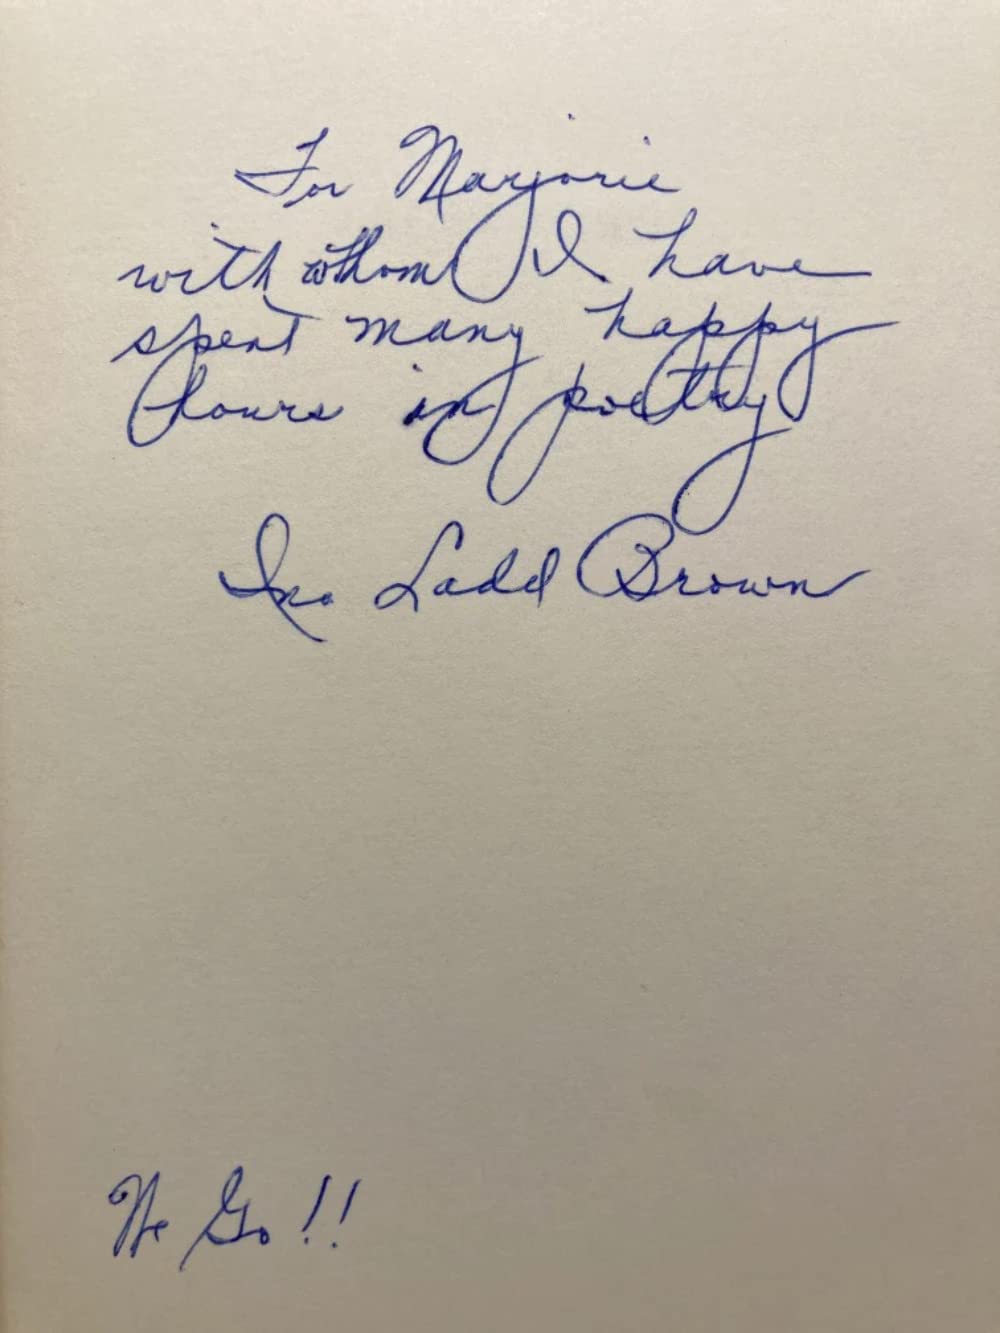 For Marjorie
with whom I have
spent many happy
hours in poetry
Ina Ladd Brown
We Go !!